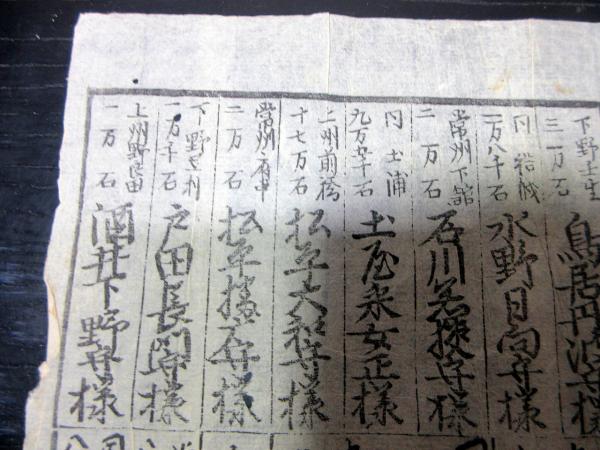 下野壬生
三万石
鳥居丹波守様
同 結城
一万八千石
水野日向守様
常州下館
二万石
石川若狭守様
同 土浦
九万五千石
土屋采女正様
上州前橋
十七万石
松平大和守様
常州府中
二万石
松平播磨守様
下野足利
一万千石
戸田長門守様
上州伊勢崎
二万石
酒井下野守様